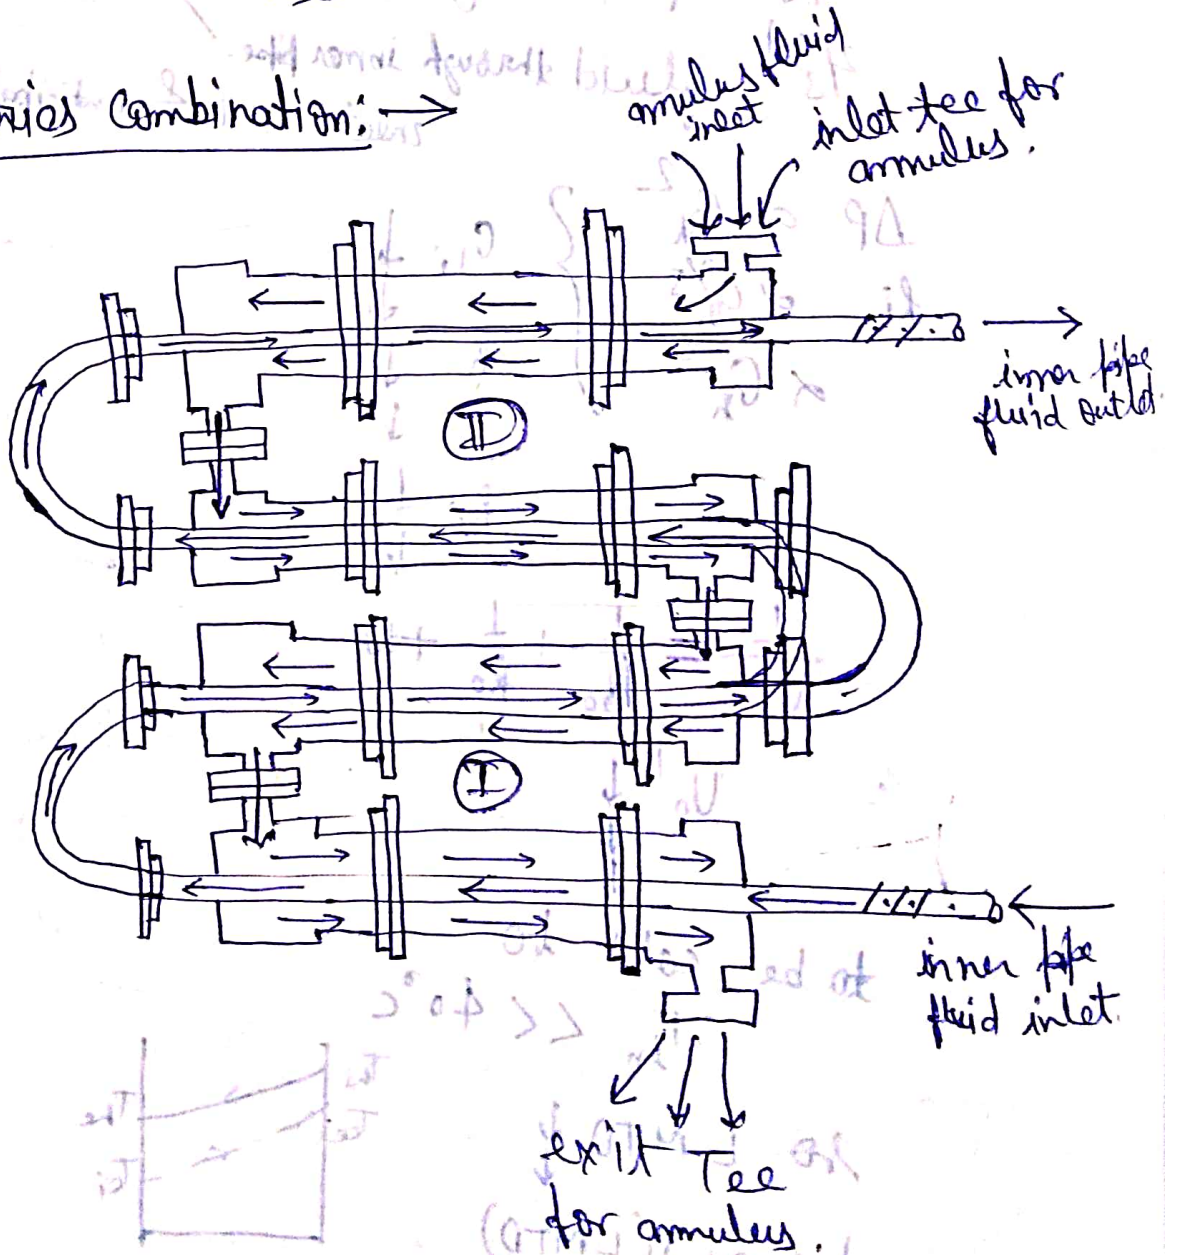 ries Combination: →
annulus fluid
inlet
inlet tee for
annulus.
inner pipe
fluid outlet.
II
I
inner pipe
fluid inlet.
exit Tee
for annulus.